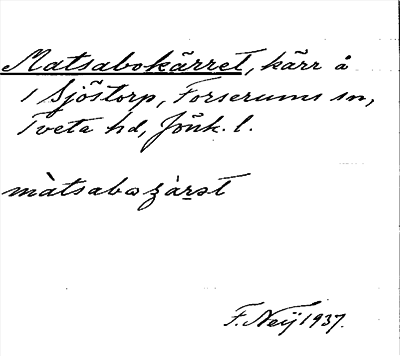 Matsabokärret, kärr å
1 Sjöstorp, Forserums sn,
Tveta hd, Jönk. l.
F. Neij 1937.